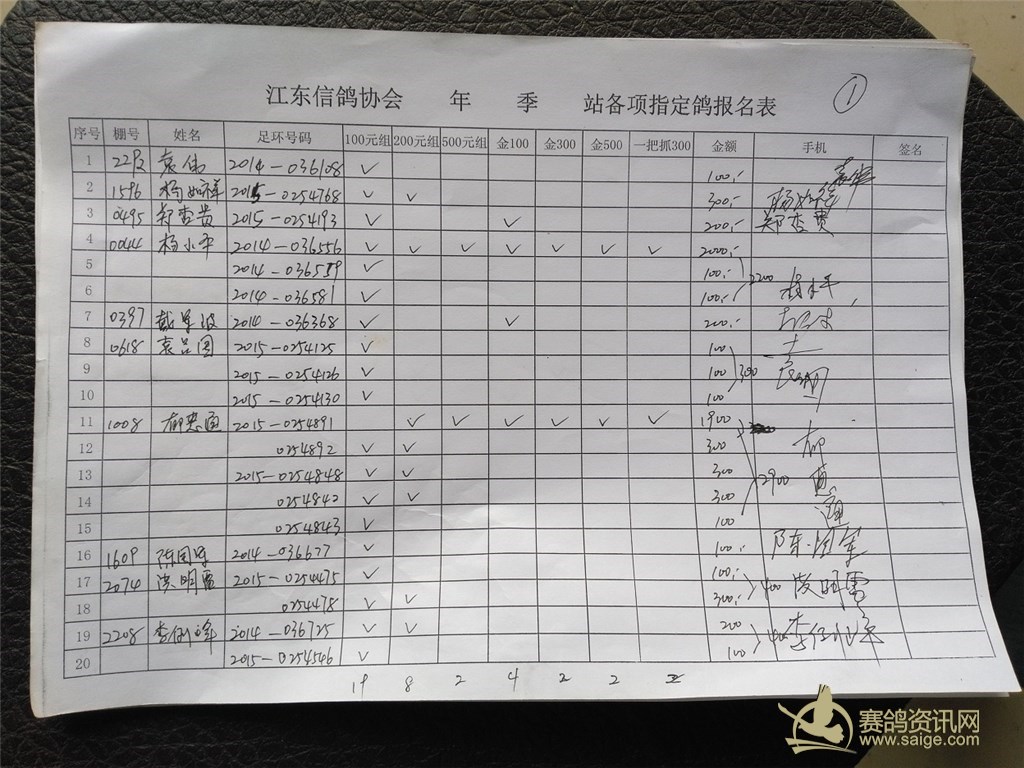 ①
江东信鸽协会 年 季 站各项指定鸽报名表
序号 棚号 姓名 足环号码 100元组 200元组 500元组 金100 金300 金500 一把抓300 金额 手机 签名
1 袁伟 2014-036108 ✓ 100,-
2 1596 2015-0254768 ✓ ✓ 300,-
3 0495 郑杏贵 2015-0254193 ✓ ✓ 200,- 郑杏贵
4 0044 杨小平 2014-036556 ✓ ✓ ✓ ✓ ✓ ✓ ✓ 2000,-
5 2014-036559 ✓ 100,- 2200
6 2014-036581 ✓ 100,- 杨小平
7 0397 2014-036368 ✓ ✓ 200,-
8 0618 袁品国 2015-0254125 ✓ 100
9 2015-0254126 ✓ 100 300
10 2015-0254130 ✓ 100
11 1008 2015-0254891 ✓ ✓ ✓ ✓ ✓ ✓ 1900
12 0254892 ✓ ✓ 300
13 2015-0254848 ✓ ✓ 300 2900
14 0254842 ✓ ✓ 300
15 0254843 ✓ 100
16 1609 陈国军 2014-036677 ✓ 100,- 陈国军
17 2074 2015-0254475 ✓ 100,- 400
18 0254478 ✓ ✓ 300,-
19 2208 2014-036725 ✓ ✓ 200
20 2015-0254546 ✓ 100
19 8 2 4 2 2 2
赛鸽资讯网
www.saige.com